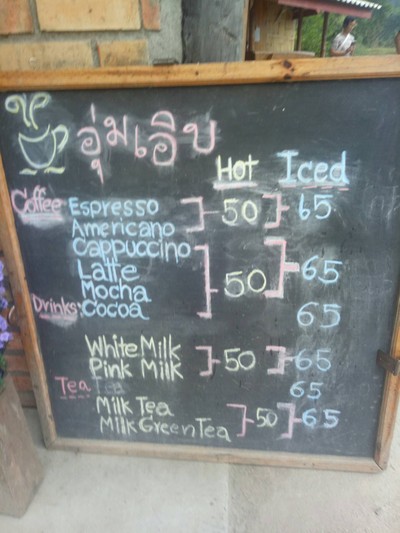 อุ่มเอิบ
Hot Iced
Coffee Espresso 50 65
Americano
Cappuccino
Latte 65
Mocha 50
Drinks: Cocoa 65
White Milk 50 65
Pink Milk
Tea Tea 65
Milk Tea 50 65
Milk Green Tea